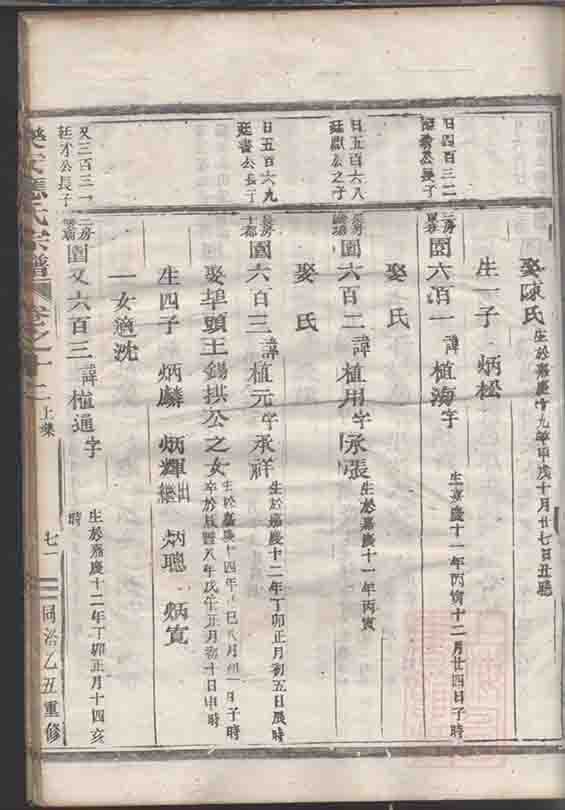 娶陳氏 生於嘉慶十九年甲戌十月廿七日丑時
生一子 炳松
日四百三二
公長子
園六百一 諱植海字 生嘉慶十一年丙寅十二月廿四日子時
娶 氏
日五百六八
廷獻公之子
長房
園六百二 諱植用字承張 生於嘉慶十一年丙寅
娶 氏
日五百六九
廷書公長子
長房
園六百三 諱植元字承祥 生於嘉慶十二年丁卯正月初五日辰時
娶埠頭王錫拱公之女 生於嘉慶十四年己巳八月初一日子時
卒於咸豐八年戊午正月初十日申時
生四子 炳麟 炳輝出繼 炳聰 炳寬
一女適沈
又三百三一
廷才公長子
二房
園又六百三 諱植通字 生於嘉慶十二年丁卯正月十四亥時
應氏宗譜 卷之十二 上集 七一 同治乙五重修